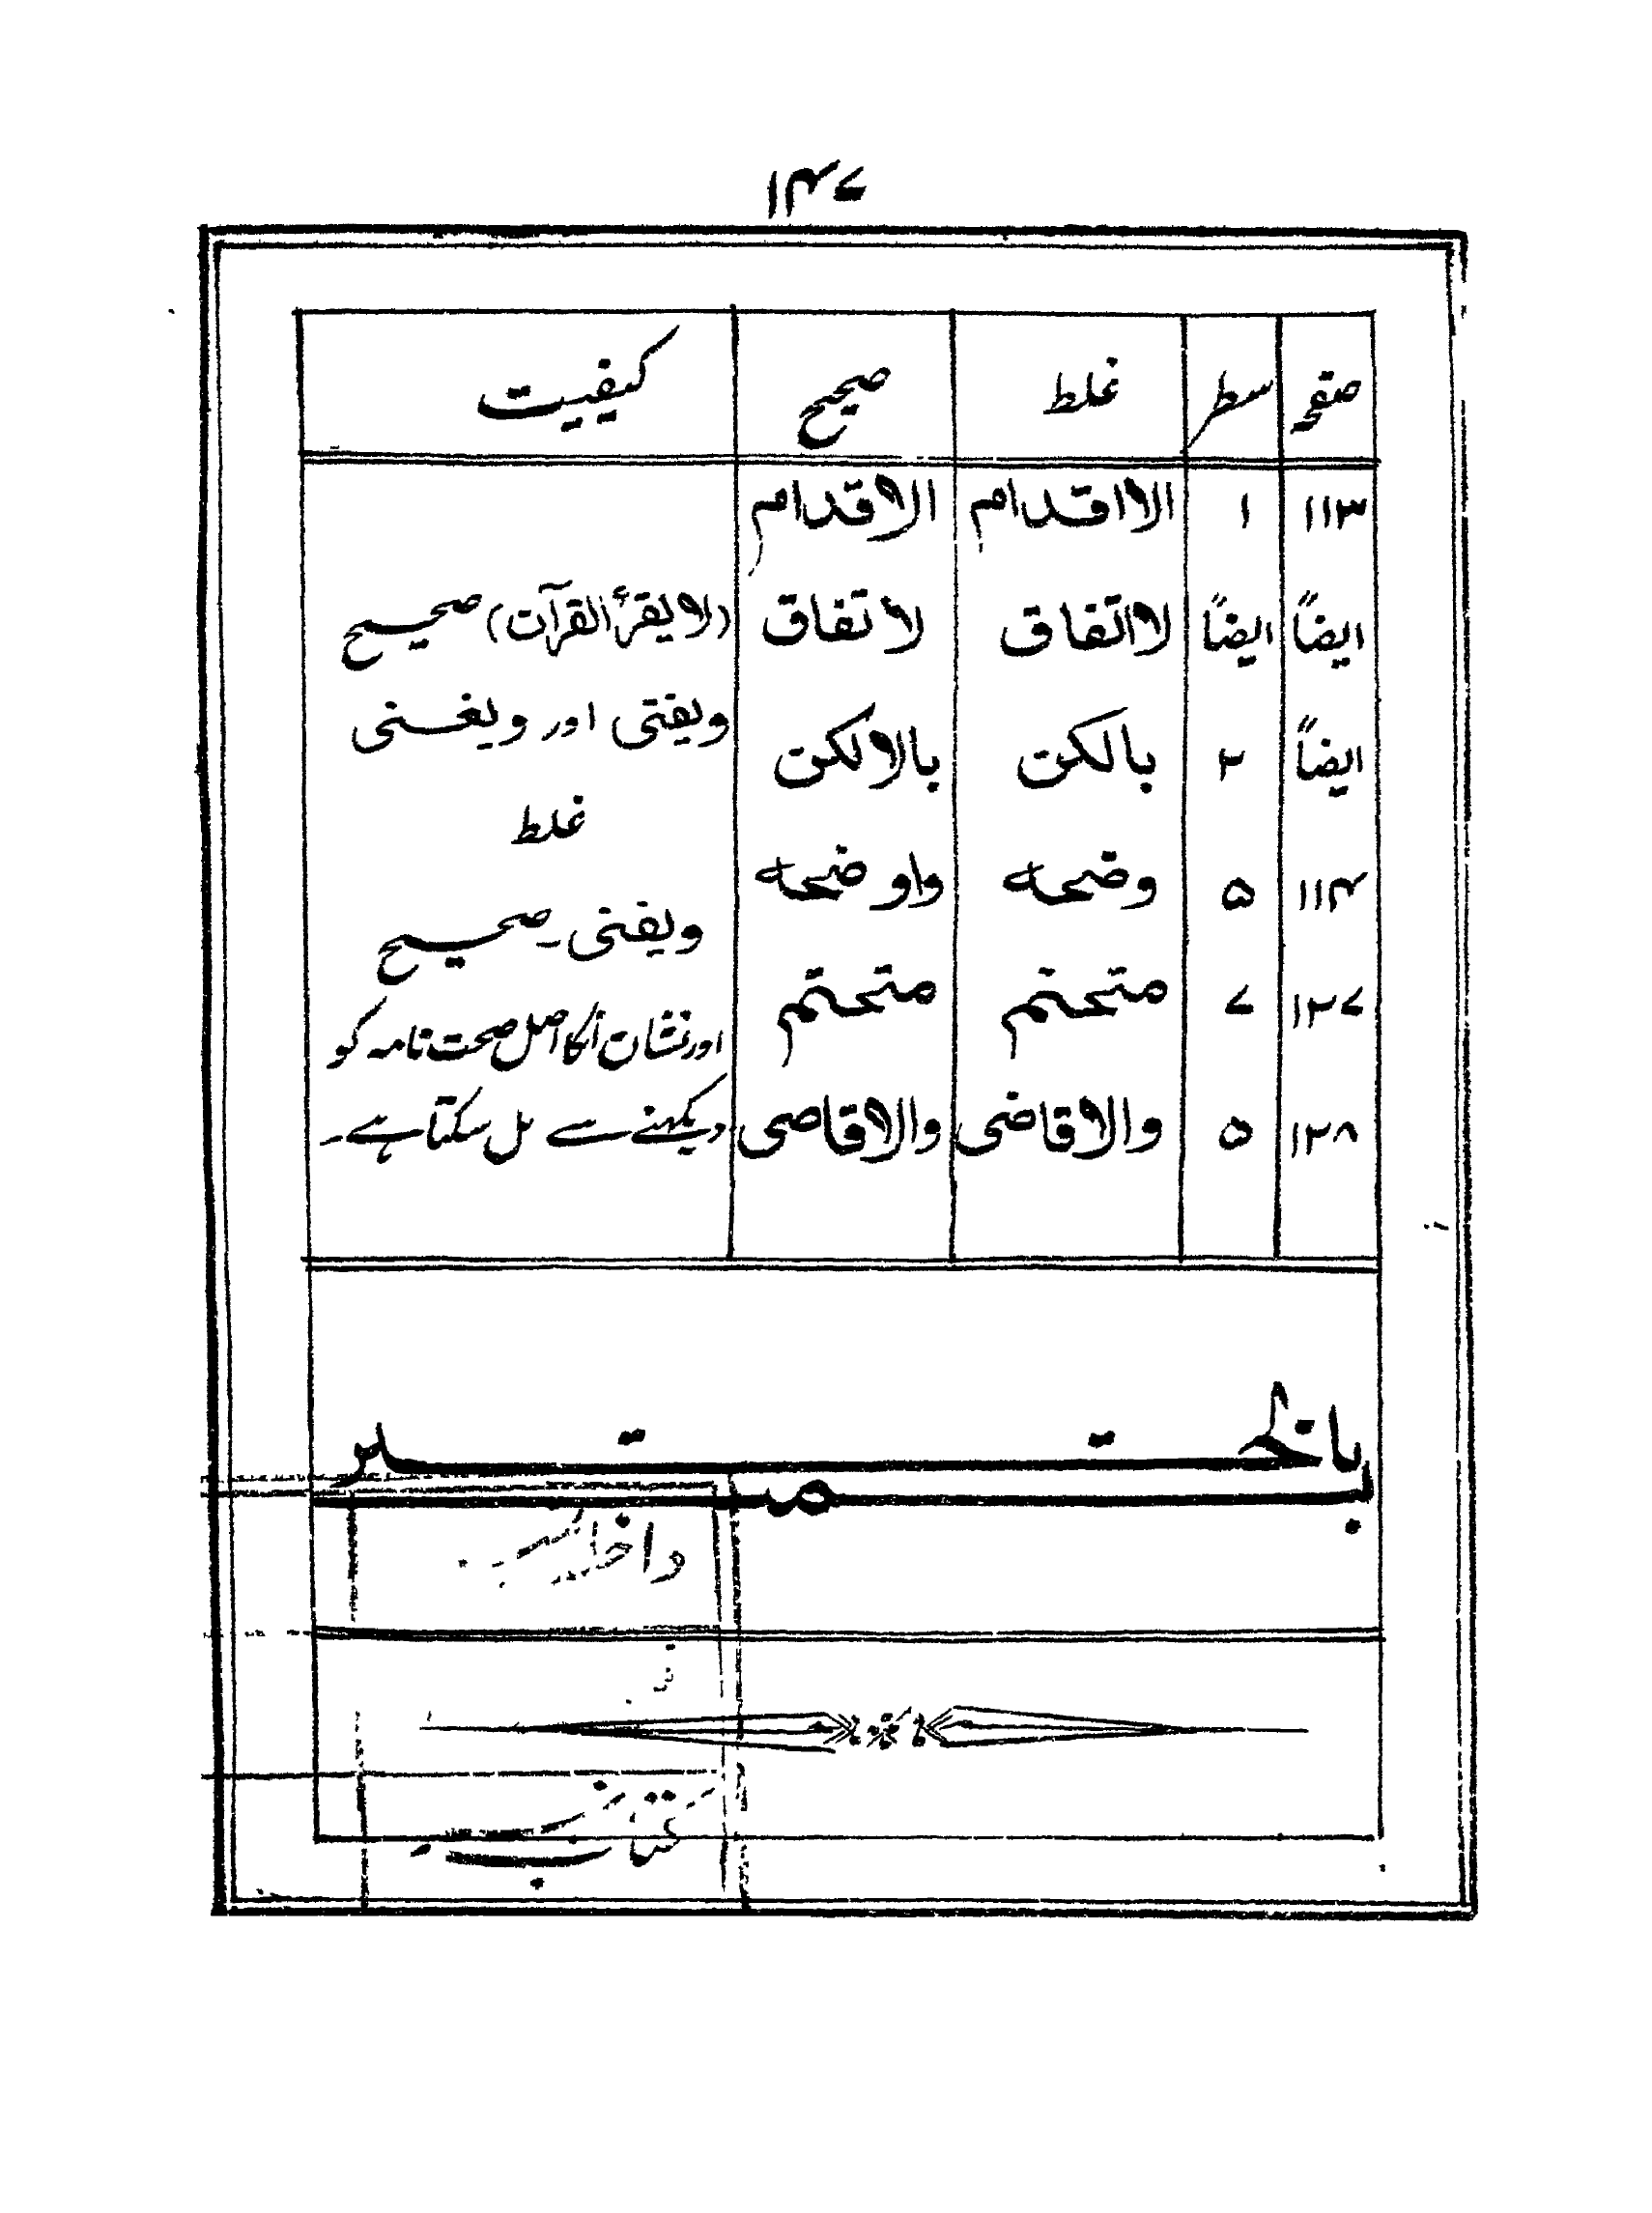 ۱۴۷
صفحہ سطر غلط صحیح کیفیت
۱۱۳ ۱ الااقدام الاقدام
ایضاً ایضاً لااتفاق لاتفاق (لایقرأ القرآن) صحیح
ایضاً ۲ بالکن بالالکن ویفتی اور ویغنی
غلط
۱۱۴ ۵ وضحہ واوضحہ ویفنی۔ صحیح
۱۲۷ ۷ متحتم متحتم اور نشان انکا اصل صحت نامہ کو
۱۲۸ ۵ والاقاضی والاقاصی دیکھنے سے مل سکتا ہے۔